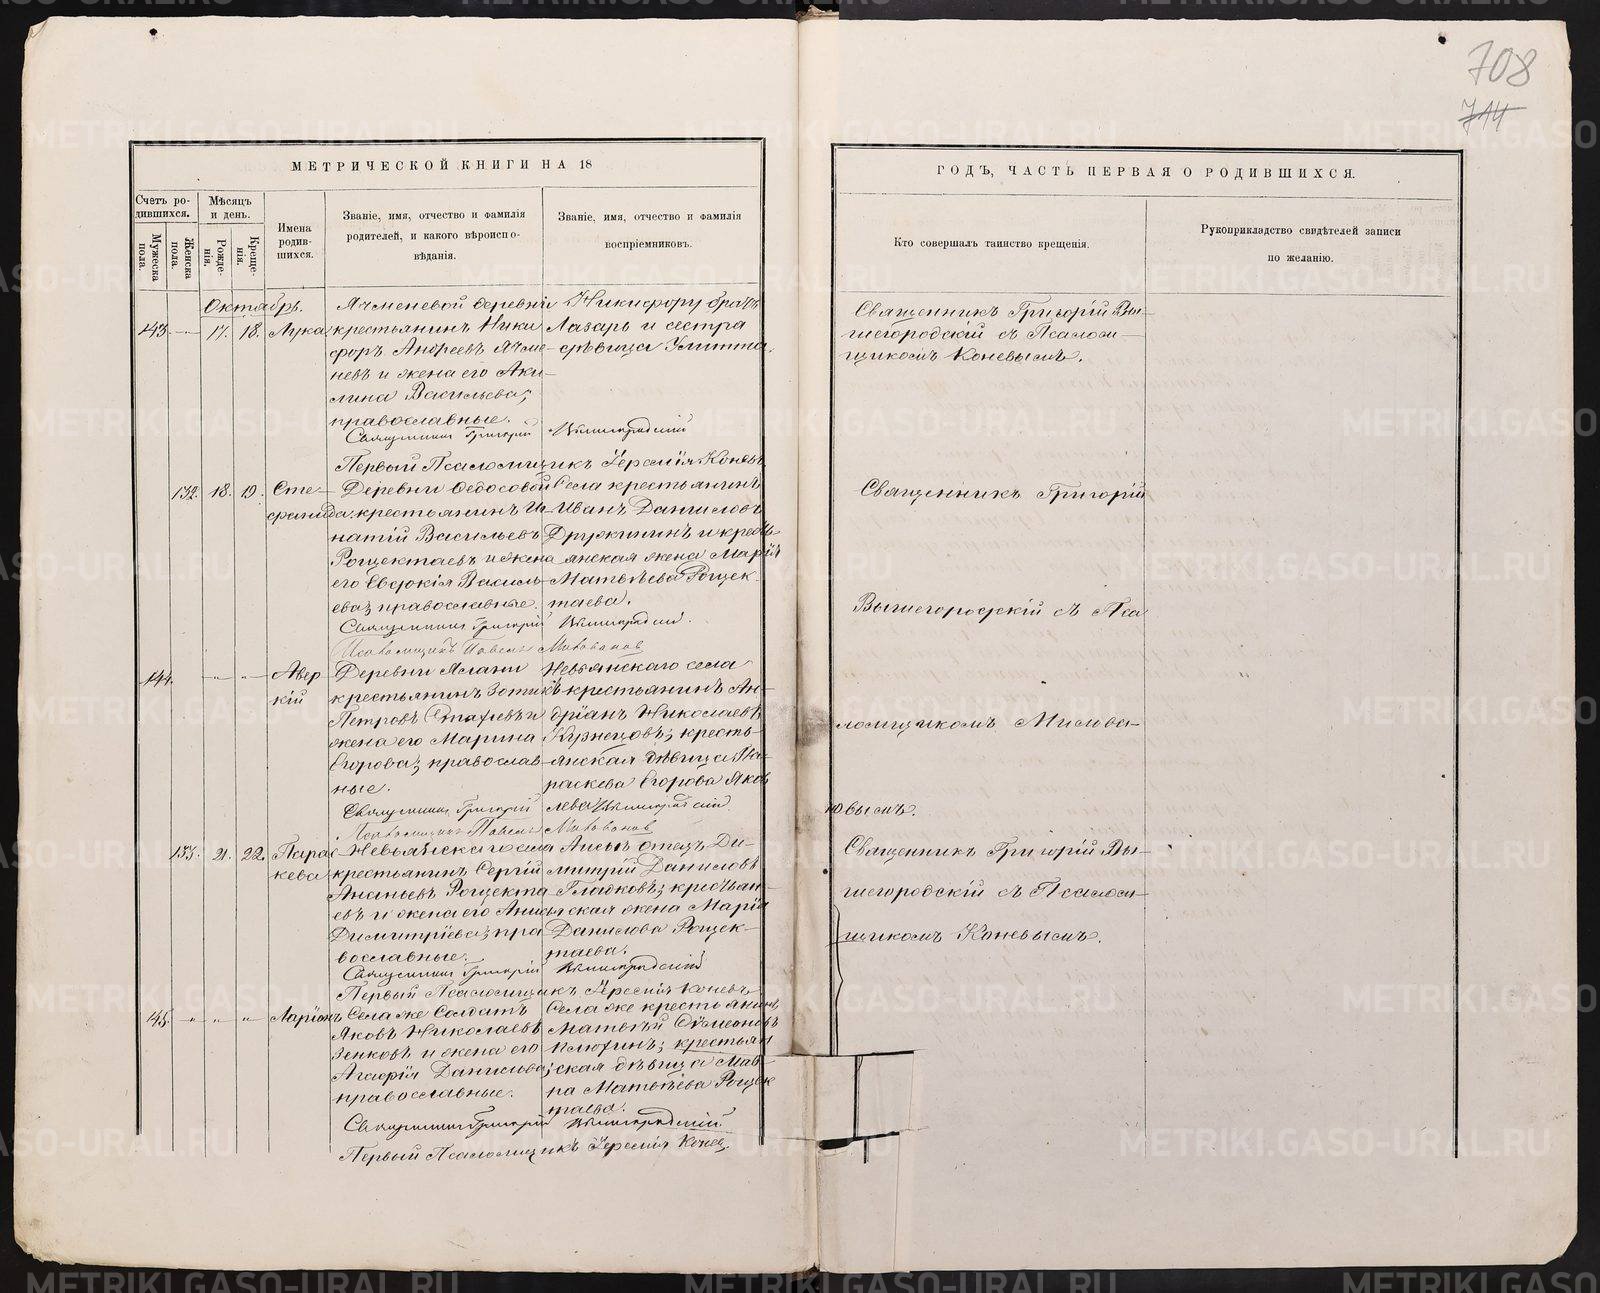 708
714
МЕТРИЧЕСКОЙ КНИГИ НА 18
ГОДЪ, ЧАСТЬ ПЕРВАЯ О РОДИВШИХСЯ.
Счетъ ро-
дившихся.
Мужеска
пола.
Женска
пола.
Мѣсяцъ
и день.
Рожде-
нія.
Креще-
нія.
Имена
родив-
шихся.
Званіе, имя, отчество и фамилія
родителей, и какого вѣроиспо-
вѣданія.
Званіе, имя, отчество и фамилія
воспріемниковъ.
Кто совершалъ таинство крещенія.
Рукоприкладство свидѣтелей записи
по желанію.
Октябрь.
143 17. 18. Лука
Ячменевой деревни
крестьянинъ Ники
форъ Андреевъ Ячме-
невъ и жена его Аки-
лина Васильева;
православные.
Никифору братъ
Лазарь и сестра
дѣвица Улитта.
Священникъ Григорій Вы-
шегородскій съ Псалом-
щикомъ Коневымъ.
Священникъ Григорій Вышегородскій
Первый Псаломщикъ Іеремія Коневъ
132. 18. 19. Сте-
фанида
Деревни Федосовой
крестьянинъ Иг-
натій Васильевъ
Рощектаевъ и жена
его Евдокія Василь-
ева; православные.
Села крестьянинъ
Иванъ Даниловъ
Дружининъ и кресть-
янская жена Марія
Матвѣева Рощек-
таева.
Священникъ Григорій
Вышегородскій съ Пса
ломщикомъ Милова-
новымъ.
Священникъ Григорій Вышегородскій.
Псаломщикъ Павелъ Миловановъ
144. " " Авер
кій
Деревни Ялани
крестьянинъ Зотикъ
Петровъ и
жена его Марина
Егорова; православ-
ные.
Невьянскаго села
крестьянинъ Ан-
дріанъ Николаевъ
Кузнецовъ; кресть-
янская дѣвица Па-
раскева Егорова Яков
лева
Священникъ Григорій Вышегородскій
Псаломщикъ Павелъ Миловановъ
133. 21. 22. Парас-
кева
Невьянскаго села
крестьянинъ Сергій
Ананьевъ Рощекта-
евъ и жена его Анисья
Димитріева; пра
вославные.
Анисьи отецъ Ди-
митрій Даниловъ
Гладковъ; крестьян-
ская жена Марія
Данилова Рощек-
таева.
Священникъ Григорій Вы-
шегородскій съ Псалом-
щикомъ Коневымъ.
Священникъ Григорій Вышегородскій
Первый Псаломщикъ Іеремія Коневъ
145. " " " Ларіонъ
Села же Солдатъ
Яковъ Николаевъ
Зенковъ и жена его
Агафія Данилова;
православные.
Села же крестьянинъ
Матвѣй Сѵмеоновъ
крестьян
ская дѣвица Мав-
ра Матвѣева Рощек
таева.
Священникъ Григорій Вышегородскій
Первый Псаломщикъ Іеремія Конев